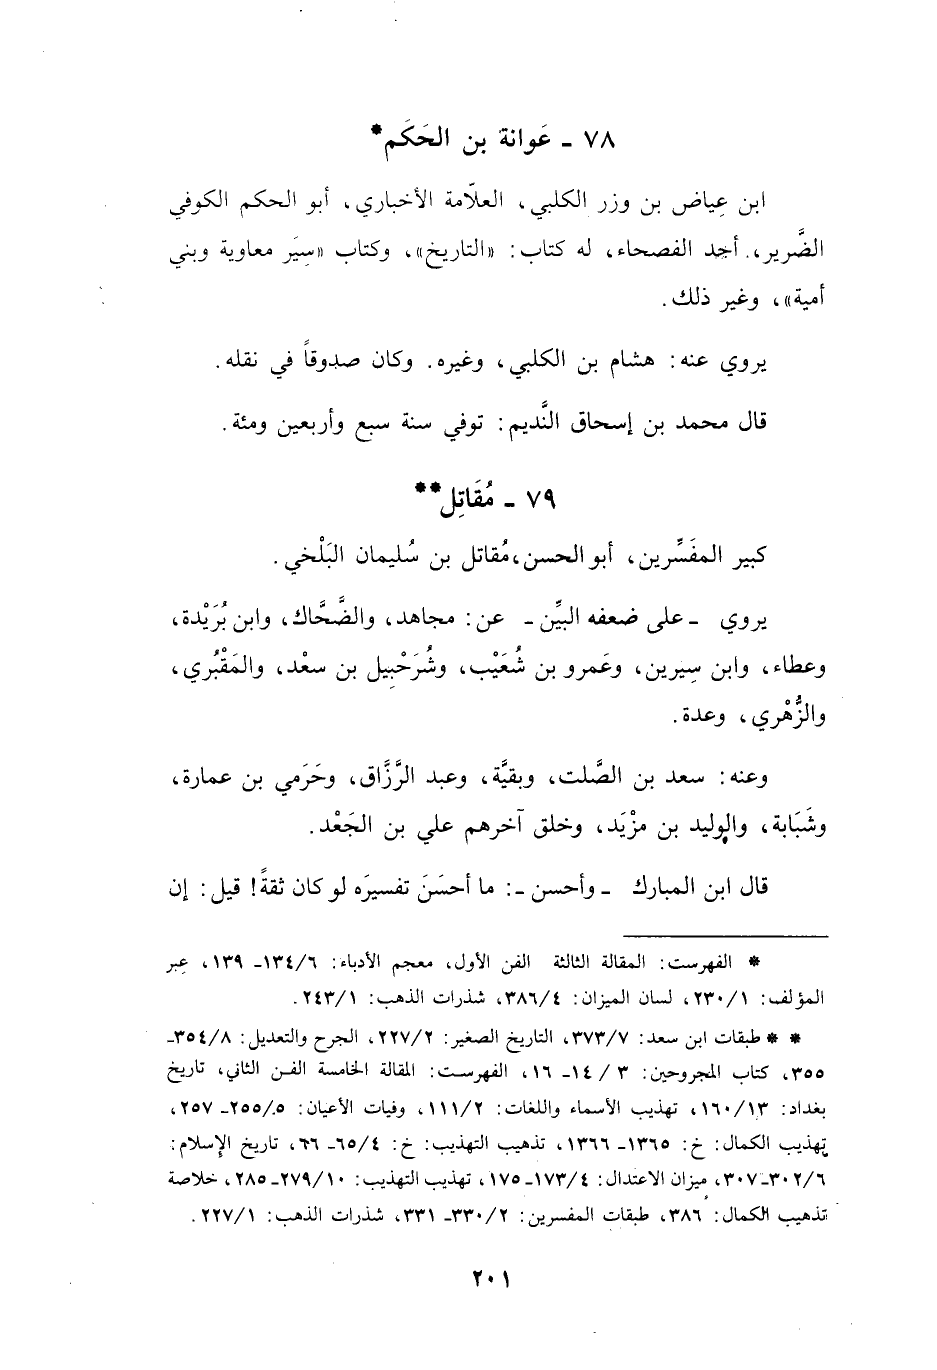 ٧٨ ـ عَوانة بن الحَكَم*
ابن عِياض بن وزر الكلبي، العلاّمة الأخباري، أبو الحكم الكوفي
الضَّرير، أحد الفصحاء، له كتاب: «التاريخ»، وكتاب «سِيَر معاوية وبني
أمية»، وغير ذلك.
يروي عنه: هشام بن الكلبي، وغيره. وكان صدوقاً في نقله.
قال محمد بن إسحاق النَّديم: توفي سنة سبع وأربعين ومئة.
٧٩ ـ مُقَاتِل**
كبير المفَسِّرين، أبو الحسن، مُقاتل بن سُليمان البَلْخي.
يروي ـ على ضعفه البيِّن ـ عن: مجاهد، والضَّحَّاك، وابن بُرَيْدة،
وعطاء، وابن سِيرين، وعَمرو بن شُعَيْب، وشُرَحْبِيل بن سعْد، والمَقْبُري،
والزُّهْري، وعدة.
وعنه: سعد بن الصَّلت، وبقيَّة، وعبد الرَّزَّاق، وحَرَمي بن عمارة،
وشَبَابة، والوليد بن مزْيَد، وخلق آخرهم علي بن الجَعْد.
قال ابن المبارك ـ وأحسن ـ: ما أحسَنَ تفسيرَه لو كان ثقةً! قيل: إن
* الفهرست: المقالة الثالثة الفن الأول، معجم الأدباء: ٦/١٣٤ـ ١٣٩، عبر
المؤلف: ١/٢٣٠، لسان الميزان: ٤/٣٨٦، شذرات الذهب: ١/٢٤٣.
** طبقات ابن سعد: ٧/٣٧٣، التاريخ الصغير: ٢/٢٢٧، الجرح والتعديل: ٨/٣٥٤ـ
٣٥٥، كتاب المجروحين: ٣/١٤ـ ١٦، الفهرست: المقالة الخامسة الفن الثاني، تاريخ
بغداد: ١٣/١٦٠، تهذيب الأسماء واللغات: ٢/١١١، وفيات الأعيان: ٥/٢٥٥ـ ٢٥٧،
تهذيب الكمال: خ: ١٣٦٥ـ ١٣٦٦، تذهيب التهذيب: خ: ٤/٦٥ـ ٦٦، تاريخ الإسلام:
٦/٣٠٢ـ٣٠٧، ميزان الاعتدال: ٤/١٧٣ـ ١٧٥، تهذيب التهذيب: ١٠/٢٧٩ـ ٢٨٥، خلاصة
تذهيب الكمال: ٣٨٦، طبقات المفسرين: ٢/٣٣٠ـ ٣٣١، شذرات الذهب: ١/٢٢٧.
٢٠١